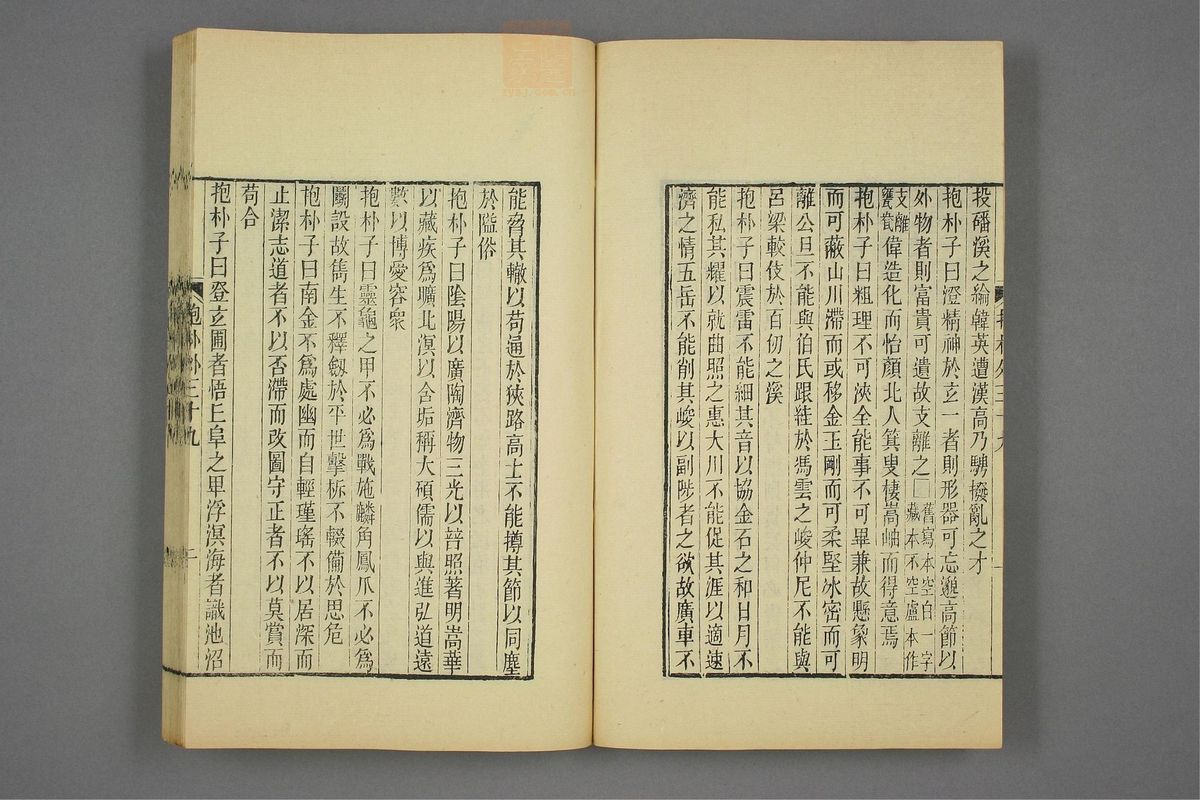 投磻溪之綸韓英遭漢高乃騁撥亂之才
抱朴子曰澄精神於玄一者則形器可忘邈高節以
外物者則富貴可遺故支離之□舊寫本空白一字藏本不空盧本作
支離甕㼜偉造化而怡顏北人箕叟棲嵩岫而得意焉
抱朴子曰粗理不可浹全能事不可畢兼故懸象明
而可蔽山川滯而或移金玉剛而可柔堅冰密而可
離公旦不能與伯氏跟絓於馮雲之峻仲尼不能與
呂梁較伎於百仞之溪
抱朴子曰震雷不能細其音以協金石之和日月不
能私其耀以就曲照之惠大川不能促其涯以適速
濟之情五岳不能削其峻以副陟者之欲故廣車不
能脅其轍以苟通於狹路高士不能撙其節以同塵
於隘俗
抱朴子曰陰陽以廣陶濟物三光以普照著明嵩華
以藏疾爲曠北溟以含垢稱大碩儒以與進弘道遠
數以博愛容衆
抱朴子曰靈龜之甲不必爲戰施麟角鳳爪不必爲
鬬設故雋生不釋劔於平世擊柝不輟備於思危
抱朴子曰南金不爲處幽而自輕瑾瑤不以居深而
止潔志道者不以否滯而改圖守正者不以莫賞而
苟合
抱朴子曰登玄圃者悟丘阜之卑浮溟海者識池沼
抱朴外三十九
二